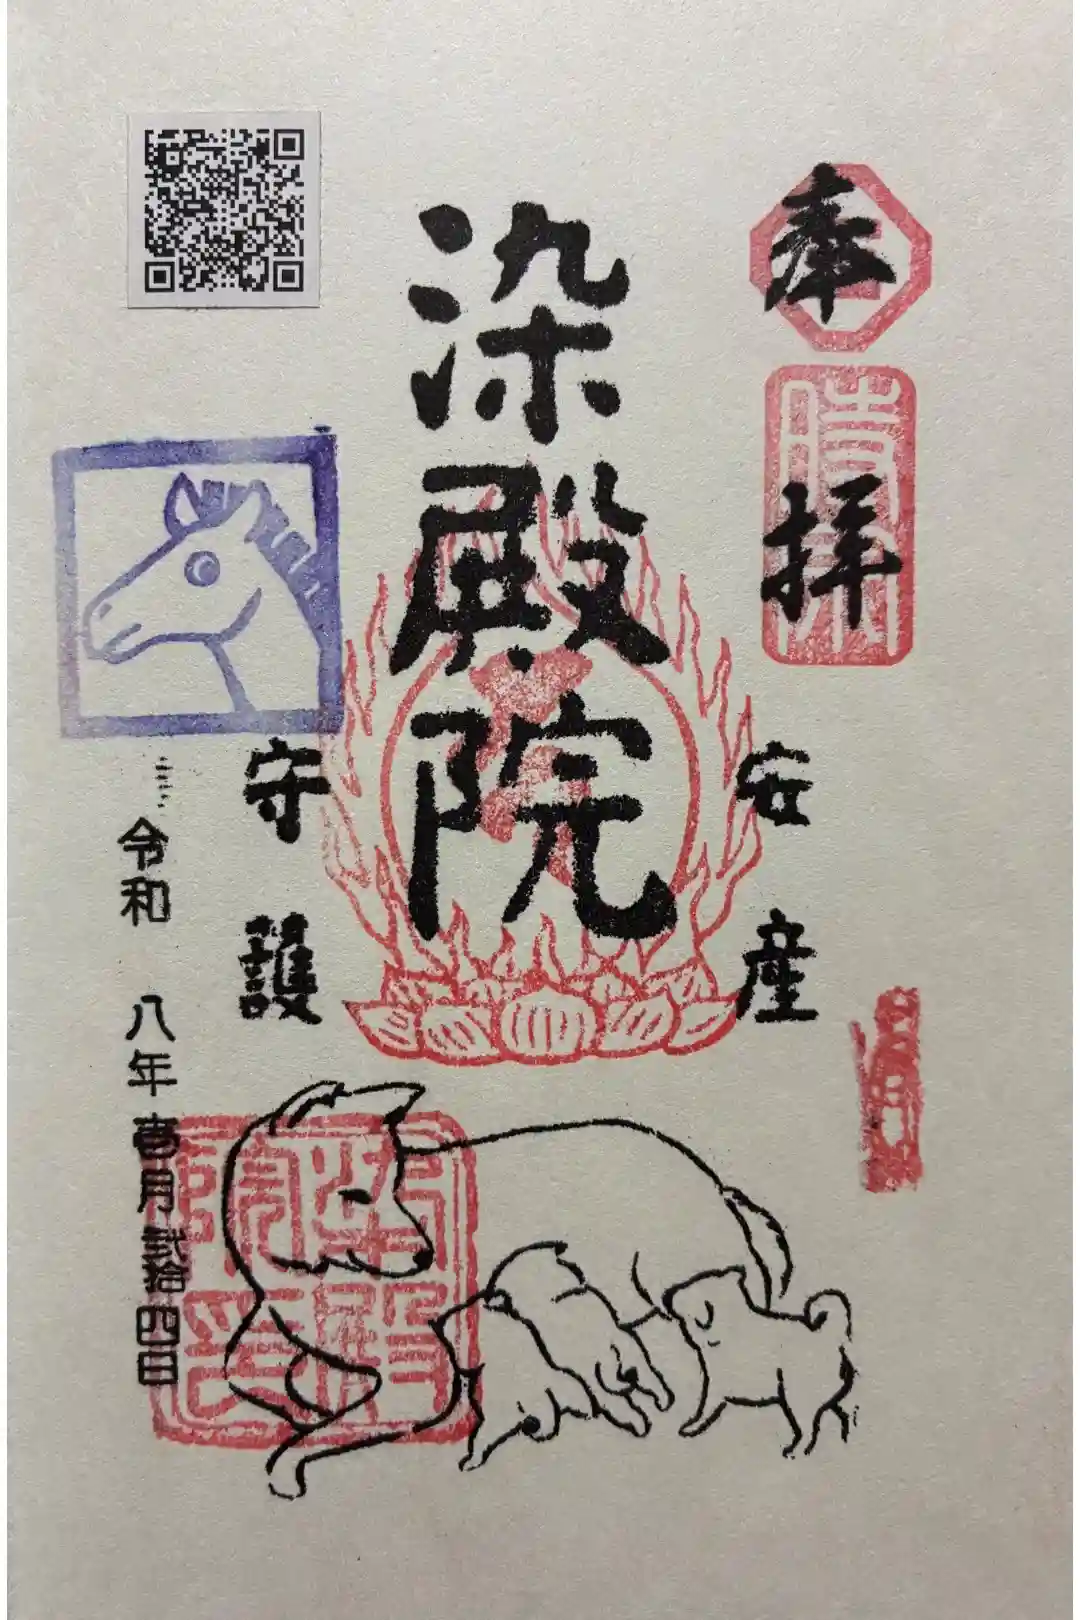 奉拝
安産
染殿院
守護
令和八年壱月弐拾四日